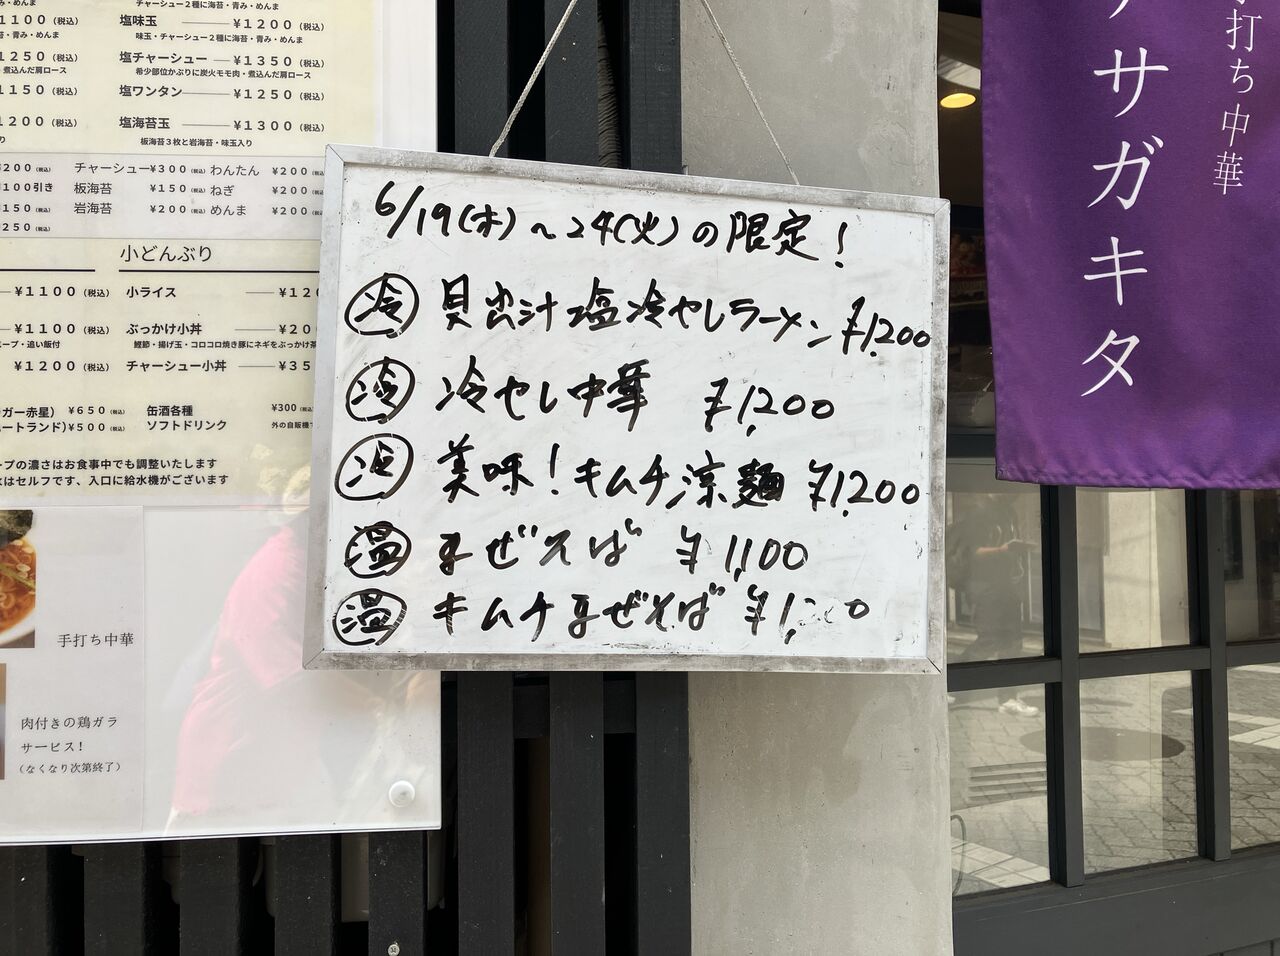 チャーシュー2種に海苔・青み・めんま
¥1100（税込）
塩味玉 ¥1200（税込）
味玉・チャーシュー2種に海苔・青み・めんま
1250（税込）
煮込んだ肩ロース
塩チャーシュー ¥1350（税込）
希少部位かぶりに炭火モモ肉・煮込んだ肩ロース
1150（税込）
塩ワンタン ¥1250（税込）
1200（税込）
塩海苔玉 ¥1300（税込）
板海苔3枚と岩海苔・味玉入り
¥200（税込） チャーシュー¥300（税込） わんたん ¥200（税込）
¥100引き 板海苔 ¥150（税込） ねぎ ¥200（税込）
¥150（税込） 岩海苔 ¥200（税込） めんま ¥200（税込）
250（税込）
小どんぶり
¥1100（税込） 小ライス
¥1100（税込） ぶっかけ小丼
スープ・追い飯付
鰹節・揚げ玉・コロコロ焼き豚にネギをぶっかけ
¥1200（税込） チャーシュー小丼
ガー赤星） ¥650（税込） 缶酒各種 ¥300（税込）
ートランド）¥500（税込） ソフトドリンク 外の自販機
ープの濃さはお食事中でも調整いたします
はセルフです、入口に給水機がございます
手打ち中華
肉付きの鶏ガラ
サービス！
（なくなり次第終了）
6/19(木)〜24(火)の限定！
冷 貝出汁塩冷やしラーメン ¥1,200
冷 冷やし中華 ¥1,200
冷 美味！キムチ涼麺 ¥1,200
温 まぜそば ¥1,100
温 キムチまぜそば
手打ち中華
サガキタ